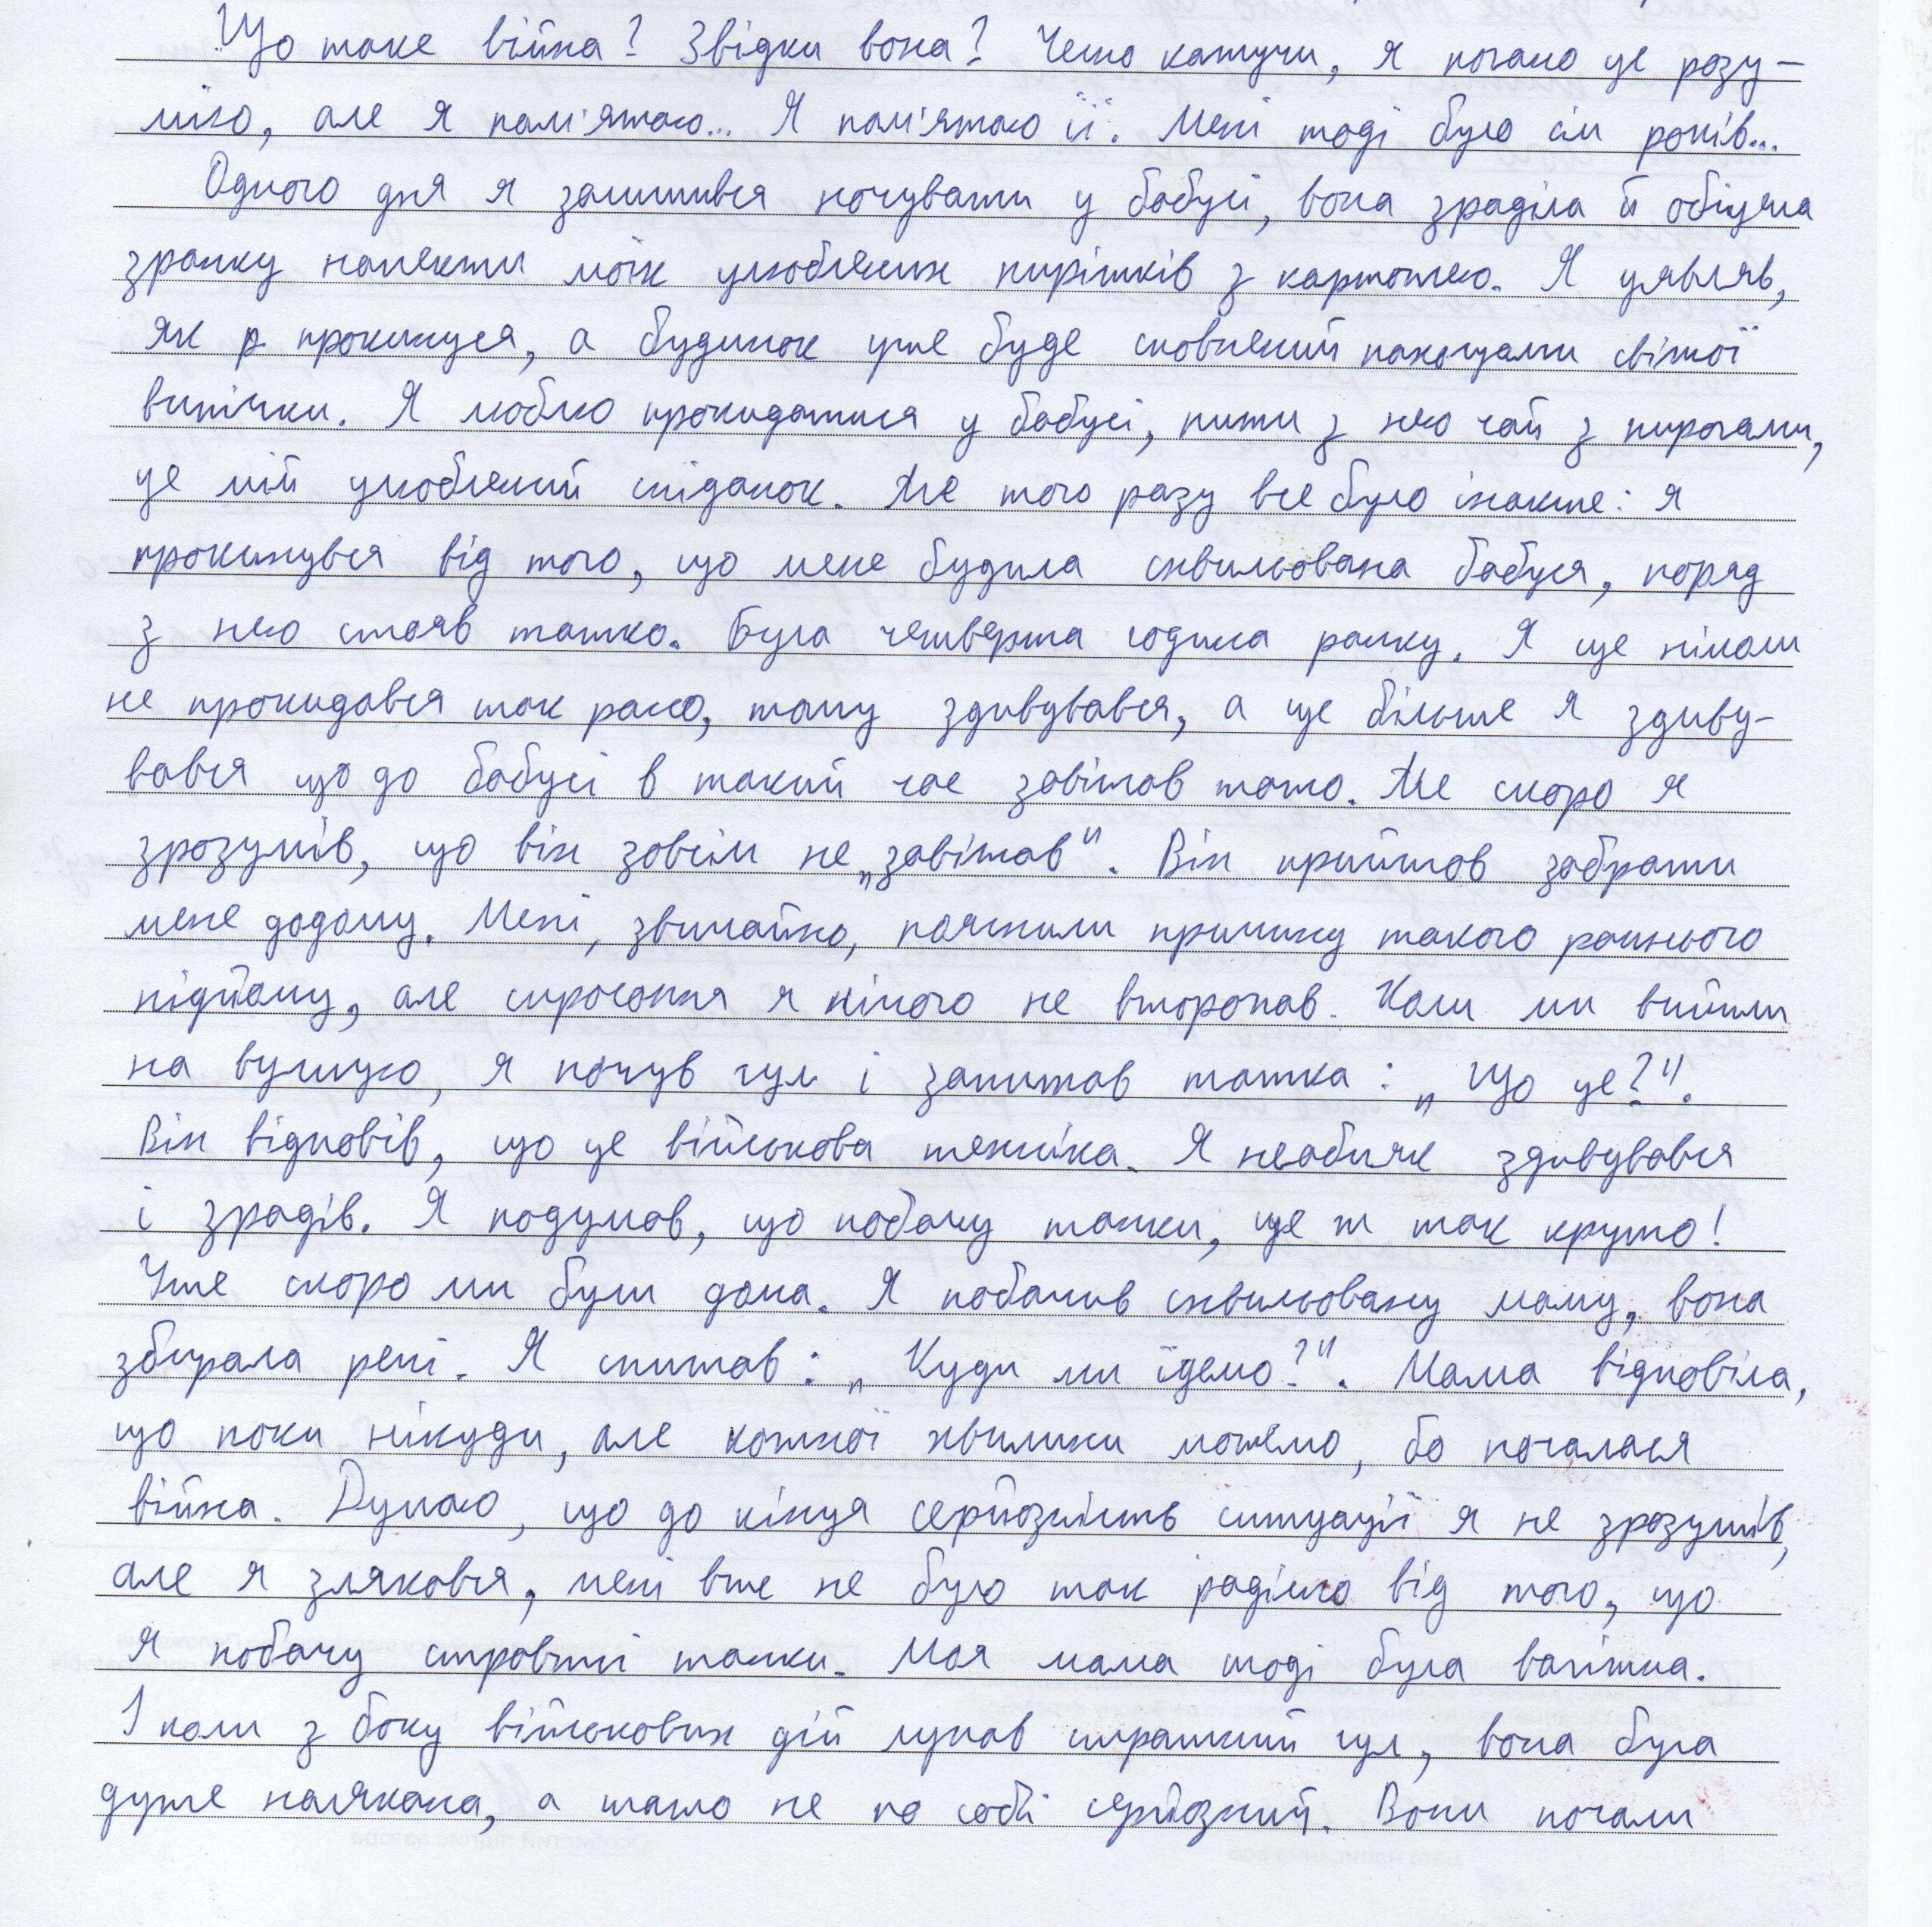 Що таке війна? Звідки вона? Чесно кажучи, я погано це розу-
мію, але я пам'ятаю... Я пам'ятаю її. Мені тоді було сім років...
Одного дня я залишився ночувати у бабусі, вона зраділа й обіцяла
зранку напекти моїх улюблених пиріжків з картоплею. Я уявляв,
як я прокинуся, а будинок уже буде сповнений пахощами свіжої
випічки. Я люблю прокидатися у бабусі, пити з нею чай з пирогами,
це мій улюблений сніданок. Але того разу все було інакше: я
прокинувся від того, що мене будила схвильована бабуся, поряд
з нею стояв татко. Була четверта година ранку. Я ще ніколи
не прокидався так рано, тому здивувався, а ще більше я здиву-
вався що до бабусі в такий час завітав тато. Але скоро я
зрозумів, що він зовсім не „завітав". Він прийшов забрати
мене додому. Мені, звичайно, пояснили причину такого раннього
підйому, але спросоння я нічого не второпав. Коли ми вийшли
на вулицю, я почув гул і запитав татка: „Що це?".
Він відповів, що це військова техніка. Я неабияк здивувався
і зрадів. Я подумав, що побачу танки, це ж так круто!
Уже скоро ми були дома. Я побачив схвильовану маму, вона
збирала речі. Я спитав: „Куди ми їдемо?". Мама відповіла,
що поки нікуди, але кожної хвилини можемо, бо почалася
війна. Думаю, що до кінця серйозність ситуації я не зрозумів,
але я злякався, мені вже не було так радісно від того, що
я побачу справжні танки. Моя мама тоді була вагітна.
І коли з боку військових дій лунав страшний гул, вона була
дуже налякана, а тато не по собі серйозний. Вони почали